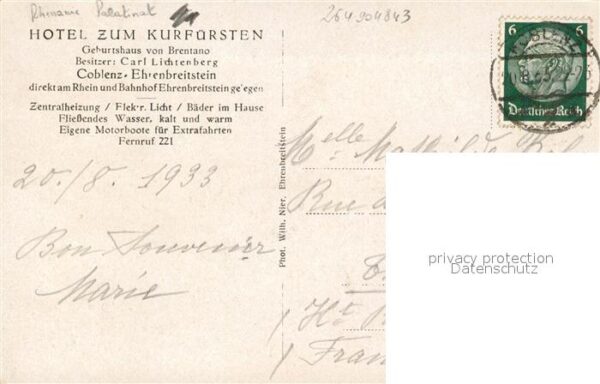 Rhénanie Palatinat
264904843
HOTEL ZUM KURFÜRSTEN
Geburtshaus von Brentano
Besitzer: Carl Lichtenberg
Coblenz-Ehrenbreitstein
direkt am Rhein und Bahnhof Ehrenbreitstein gelegen
Zentralheizung / Elektr. Licht / Bäder im Hause
Fließendes Wasser, kalt und warm
Eigene Motorboote für Extrafahrten
Fernruf 221
20./8. 1933
Bon Souvenir
Marie
Phot. Wilh. Nier, Ehrenbreitstein
6 6
Deutsches Reich
KOBLENZ
Melle Mathilde
Rue
Hte
Fran
privacy protection
Datenschutz